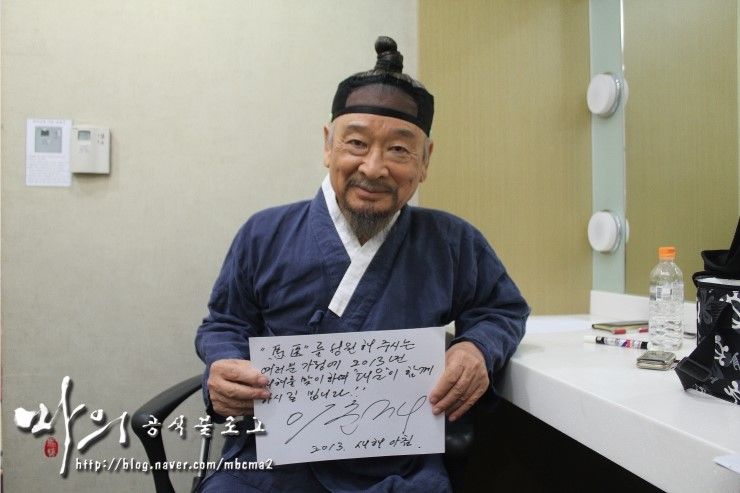 "馬医"를 성원해 주시는
여러분 가정에 2013년
새해를 맞이하여 "대운"이 함께
하시길 빕니다!!
이순재
2013. 새해 아침.
마의 공식블로그
http://blog.naver.com/mbcma2